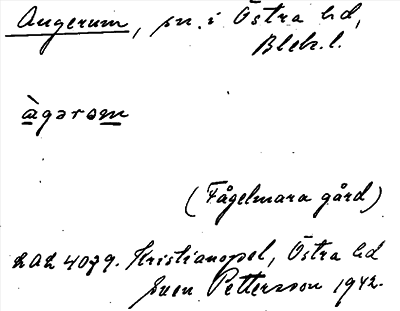 Augerum, sn. i Östra hd,
Blek. l.
àgərom
(Fågelmara gård)
LAL 4079. Kristianopel, Östra hd
Sven Pettersson 1942.